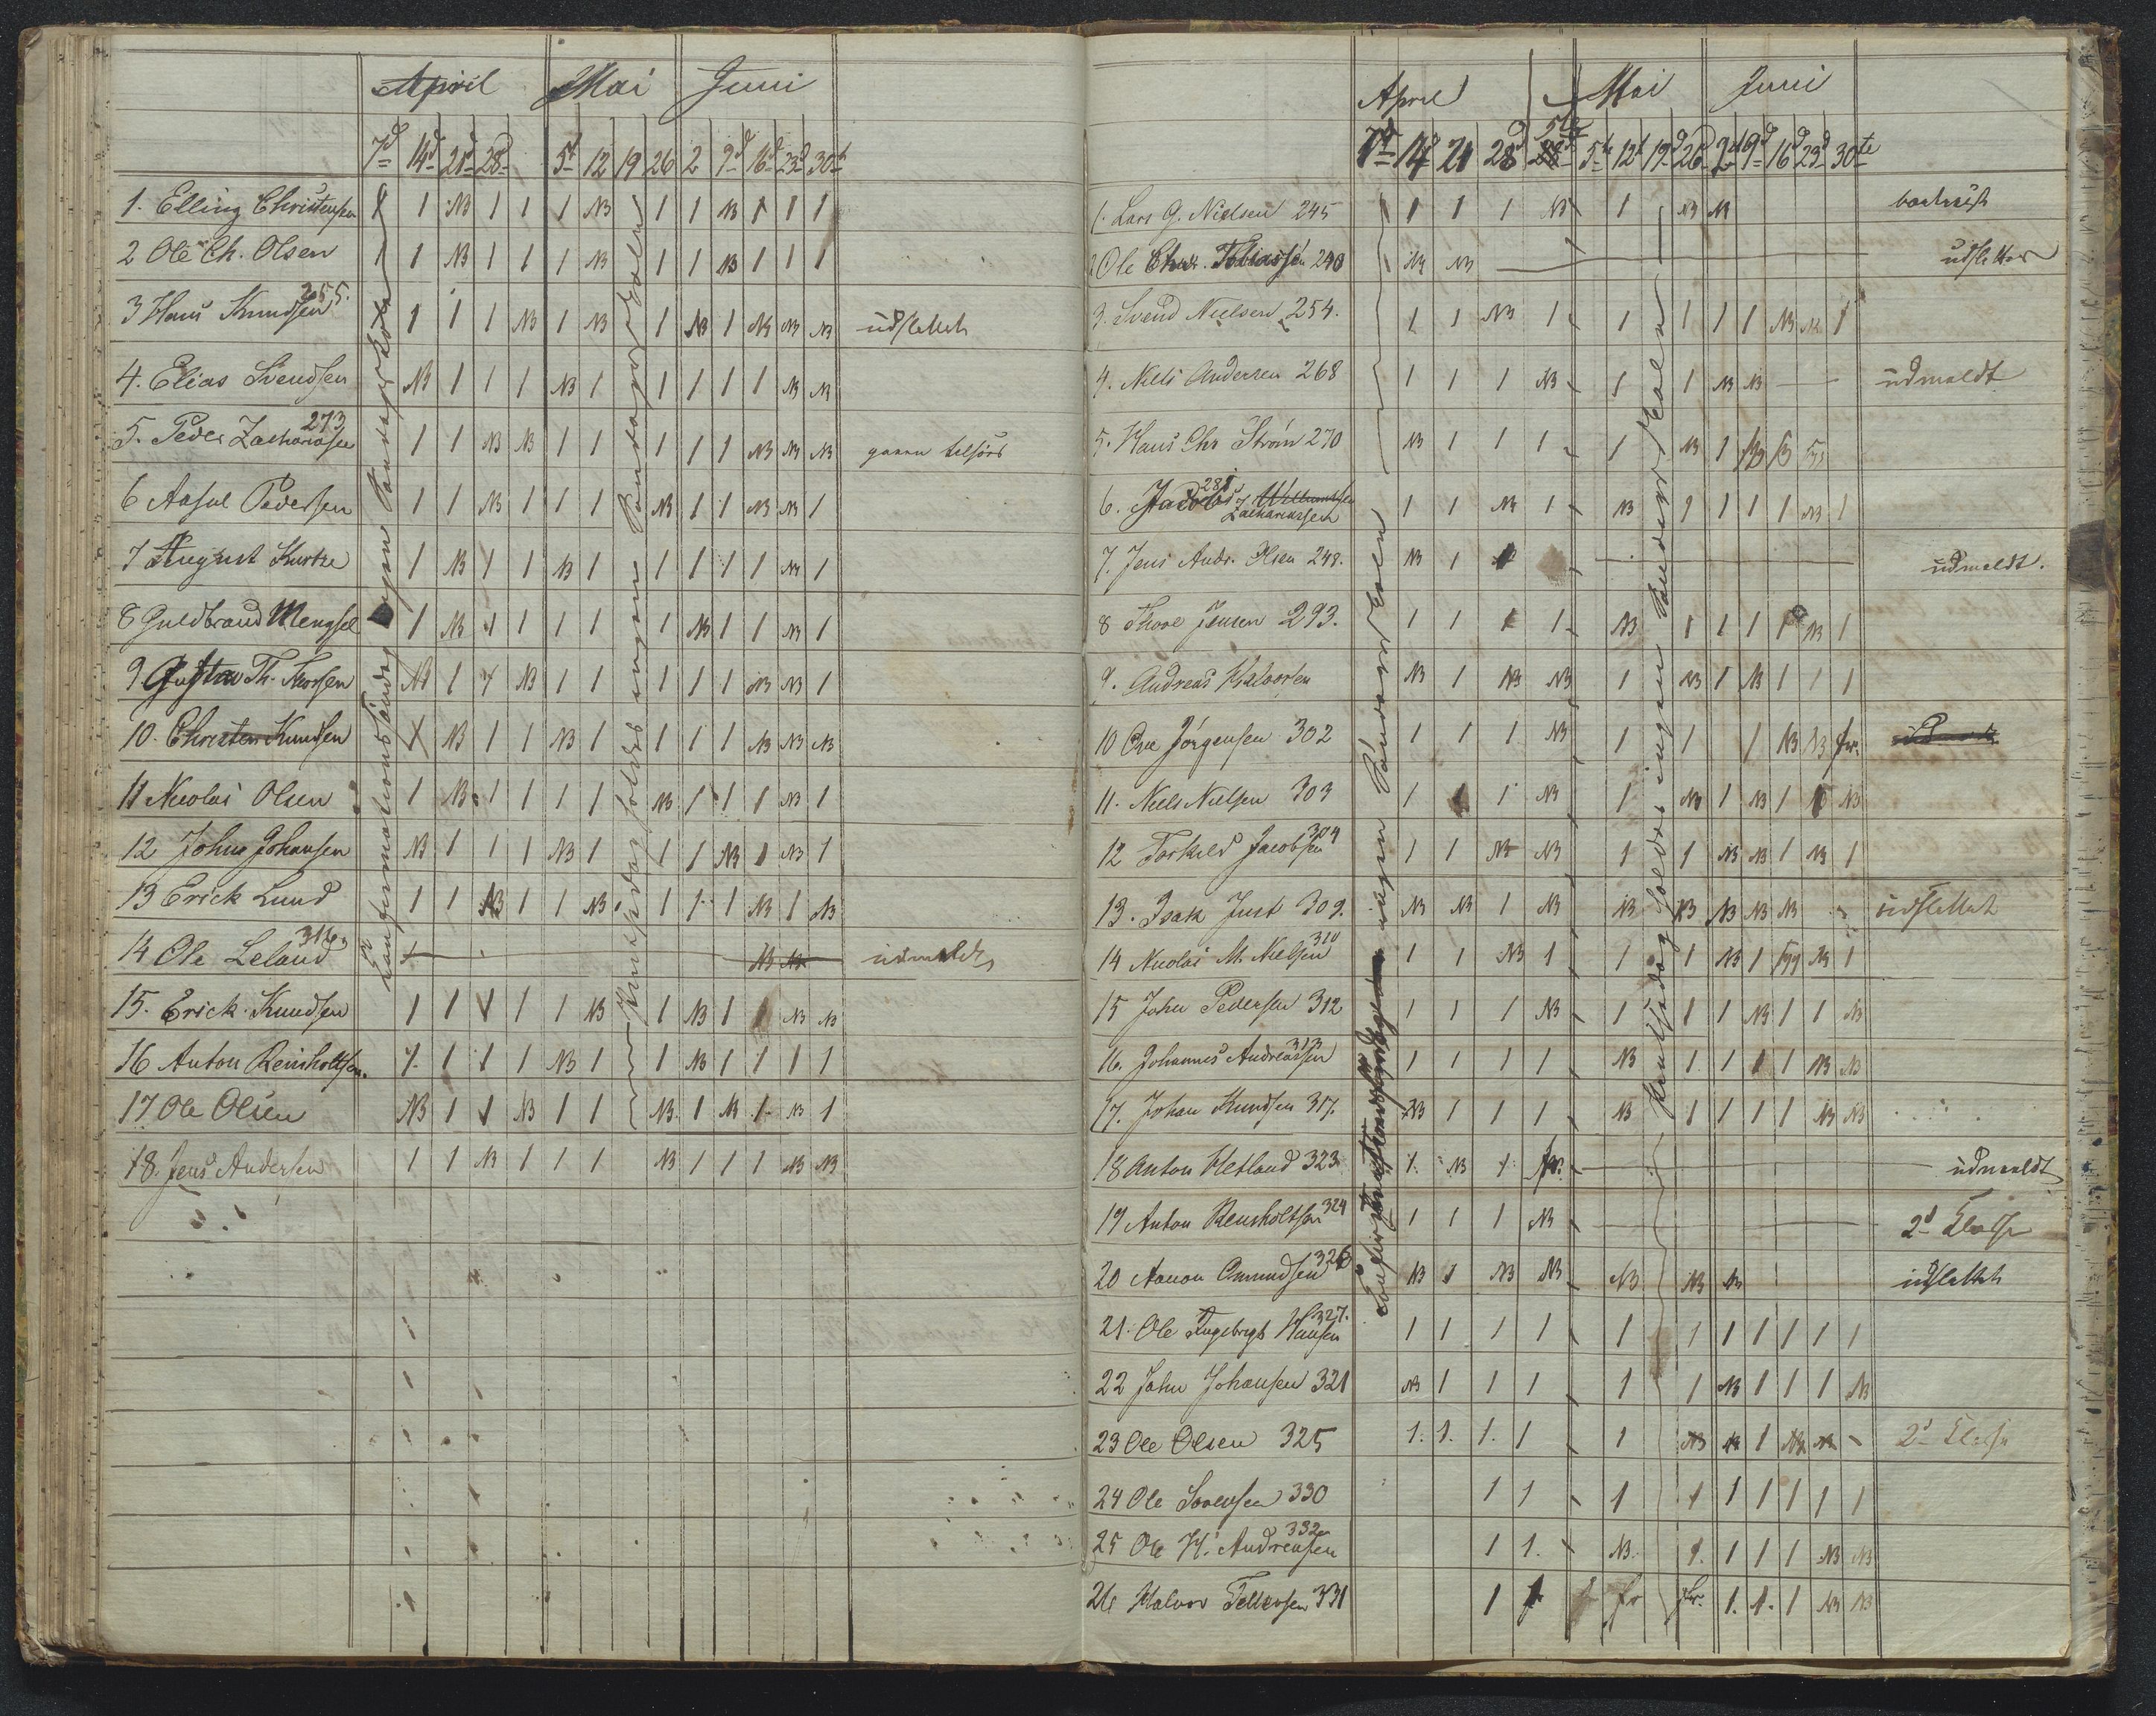 April Mai Juni
7d 14d 21d 28d 5t 12 19 26 2 9d 16d 23d 30t
1. Elling Christensen 1 1 NB 1 1 1 NB 1 1 NB 1 1 1
2 Ole Ch. Olsen 1 1 NB 1 1 1 NB 1 1 NB 1 1 1
3 Hans Knudsen 255. 1 1 1 NB 1 NB 1 NB 1 NB NB NB udslettet
4. Elias Svendsen NB 1 1 1 NB 1 1 1 1 1 NB NB
5. Peder Zachariasen 273 1 1 NB NB 1 1 1 1 1 NB NB NB
6 Aksel Pedersen 1 1 NB 1 1 1 NB 1 1 NB NB 1
7 August 1 NB 1 1 NB 1 1 1 1 1 NB 1
8 Guldbrand Mengsel 1 NB 1 1 1 1 1 NB 1 1 NB 1
9. Gustav Th. NB 1 1 NB 1 1 1 1 1 NB NB 1
10. Christen Knudsen 1 NB 1 1 NB 1 1 1 1 NB NB NB
11 Nicolai Olsen 1 NB 1 1 1 1 NB 1 1 1 NB 1
12 John Johansen NB 1 1 1 NB 1 1 1 NB 1 NB 1
13 Erick Lund 1 1 NB 1 1 NB 1 1 1 NB 1 NB
14 Ole Leland 316 NB NB udmeldt
15. Erick Knudsen 1 1 1 1 1 NB 1 NB 1 1 NB NB
16 Anton Reinholtsen. 1 1 1 1 NB 1 1 NB 1 1 1 1
17 Ole Olsen NB 1 1 NB 1 1 NB 1 NB 1 NB 1
18. Jens Andersen 1 1 NB 1 1 1 NB 1 1 1 NB NB
ingen
holdes ingen
April Mai Juni
7d 14d 21 28d 5te 28d 5te 12t 19d 26d 2d 9d 16d 23d 30te
1. Lars G. Nielsen 245 1 1 1 NB 1 NB NB bortreist
2 Ole Chr. Tobiassen 240 NB NB udslettes
3. Svend Nielsen 254. 1 1 NB 1 1 1 1 1 NB NB 1
4. Niels Andersen 268 1 1 1 NB 1 1 NB NB udmeldt
5. Hans Chr Strøm 270 NB 1 1 1 1 NB 1 NB
6. Jacob 281 Zachariassen 1 1 NB 1 NB 1 1 1 1 NB 1
7. Jens Andr. Olsen 248. NB 1 udmeldt.
8 Thore Jensen 293. 1 1 1 1 NB 1 1 1 1 NB 1
9. Andreas Halvorsen NB 1 NB NB 1 NB 1 NB 1 1 1
10 Ove Jörgensen 302 1 1 1 NB 1 1 1 NB NB fr.
11. Niels Nielsen 303 1 1 1 NB 1 NB 1 NB 1 NB
12 Torkild Jacobsen 304 1 1 NB NB 1 1 NB NB 1 NB 1
13. Isak Just 309. NB NB 1 NB NB NB NB NB NB udslettet
14 Nicolai M. Nielsen 310 1 1 NB 1 1 1 NB 1 NB 1
15 John Pedersen 312 1 1 1 NB 1 1 1 NB 1 1 NB
16. Johannes Andreassen 313 1 1 1 1 NB 1 1 1 1 NB NB
17. Johan Knudsen 317. NB 1 1 1 NB 1 1 1 1 NB NB
18 Anton Hetland 323 1. NB 1 fr. udmeldt
19 Anton Reinholtsen 324 1 1 1 NB 2d Classe
20 Aanon Omundsen 326 NB 1 NB NB NB NB NB udslettet
21. Ole Ingebrigt Hansen 327. 1 1 1 1 1 1 1 1 1 1 1
22 John Johansen 321 NB 1 1 1 1 1 NB 1 1 1 NB
23 Ole Olsen 325 1. 1. 1. 1 1 NB NB 1 NB NB 2d Classe
24 Ole Sørensen 330 1 1 1 1 1 1 1 1 1
25 Ole H. Andreasen 332 1 1. NB. 1. 1 1 1 NB NB
26 Halvor Tellefsen 331 1 1 fr fr. 1. 1. 1 NB NB
ingen
holdes ingen